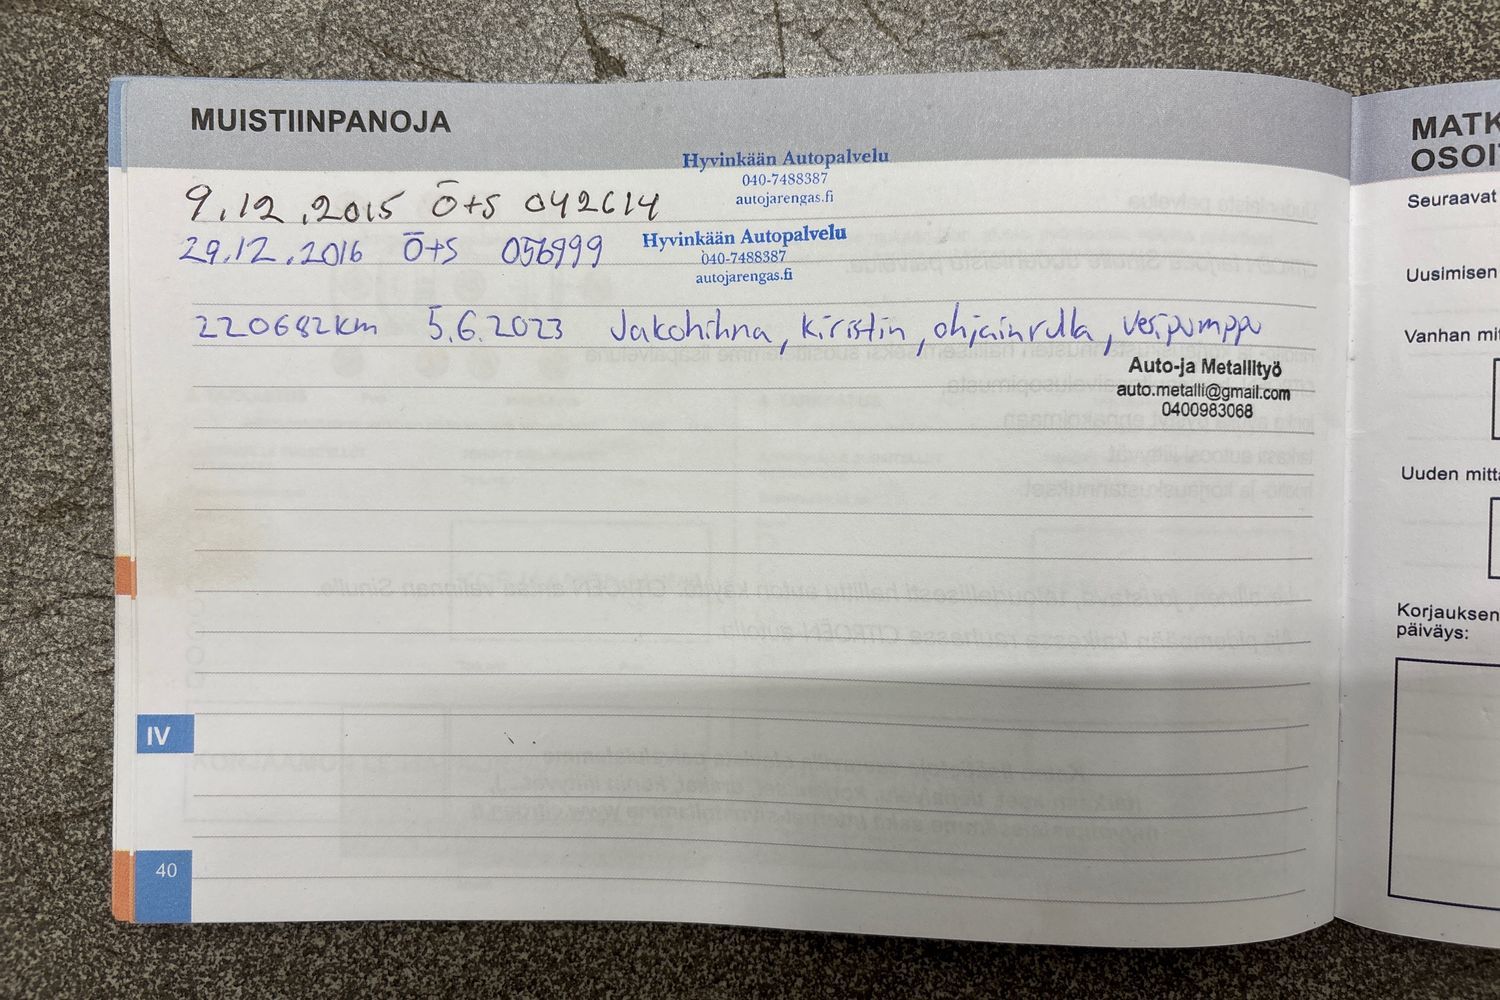 MUISTIINPANOJA
Hyvinkään Autopalvelu
040-7488387
autojarengas.fi
9.12.2015 Ö+S 042614
29.12.2016 Ö+S 056999
Hyvinkään Autopalvelu
040-7488387
autojarengas.fi
220682km 5.6.2023 Jakohihna, kiristin, ohjainrulla, vesipumppu
Auto-ja Metallityö
auto.metalli@gmail.com
0400983068
IV
40
MATK
OSOI
Seuraavat
Uusimisen
Vanhan mit
Uuden mitta
Korjauksen
päiväys: